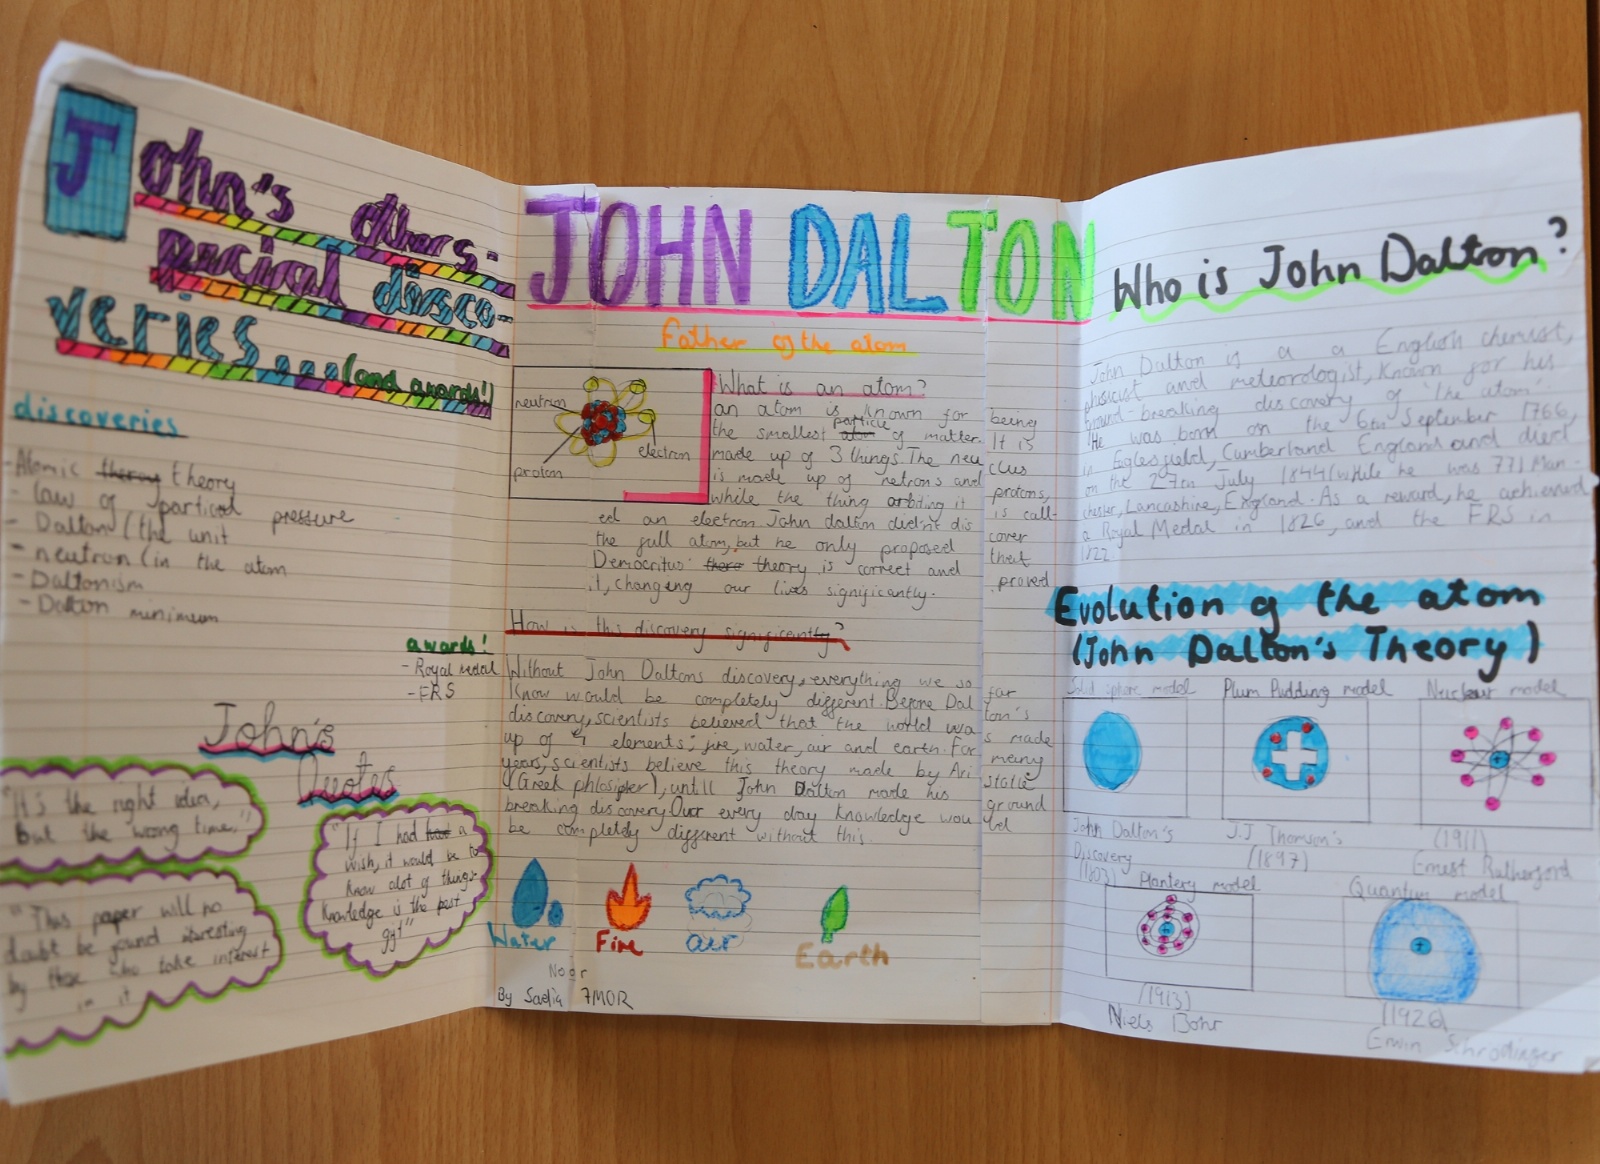 John's others-
pecial disco-
veries...(and awards!)
discoveries
-Atomic theroy theory
- law of particel pressure
- Dalton (the unit
- neutron (in the atom
- Daltonism
- Dalton minimum
awards!
- Royal medal
- FRS
John's
Quotes
"It's the right idea,
but the wrong time."
"If I had have a
wish, it would be to
know alot of things-
knowledge is the best
gift"
"This paper will no
doubt be found interesting
by those who take interest
in it
JOHN DALTON
Father of the atom
neutron
electron
proton
What is an atom?
an atom is known for being
particle
the smallest atom of matter. It is
made up of 3 things. The neu clus
is made up of netrons and protons,
while the thing orbiting it is call-
ed an electron. John dalton didn't dis cover
the full atom, but he only proposed that
Democritus' there theory is correct and proved
it, changing our lives significantly.
How is this discovery significantly?
Without John Daltons discovery, everything we so far
know would be completely different. Before Dal ton's
discovery, scientists believed that the world wa s made
up of 4 elements; fire, water, air and earth. For many
years, scientists believe this theory made by Ari stotle
(Greek phlosipher), untill John Dalton made his ground
breaking discovery. Our every day knowledge wou ld
be completely different without this.
Water
Fire
air
Earth
Noor
By Sadia 7MOR
Who is John Dalton?
John Dalton is a a English chemist,
physicist and meteorologist, known for his
ground-breaking discovery of 'the atom'.
He was born on the 6th September 1766,
in Eaglesfield, Cumberland England and died
on the 27th July 1844 (while he was 77) Man-
chester, Lancashire, England. As a reward, he achieved
a Royal Medal in 1826, and the FRS in
1822.
Evolution of the atom
(John Dalton's Theory)
Solid sphere model
Plum Pudding model
Nuclear model
John Dalton's
Discovery
(1803)
J.J Thomson's
(1897)
(1911)
Ernest Rutherford
Plantery model
Quantum model
(1913)
Niels Bohr
(1926)
Erwin Schrodinger